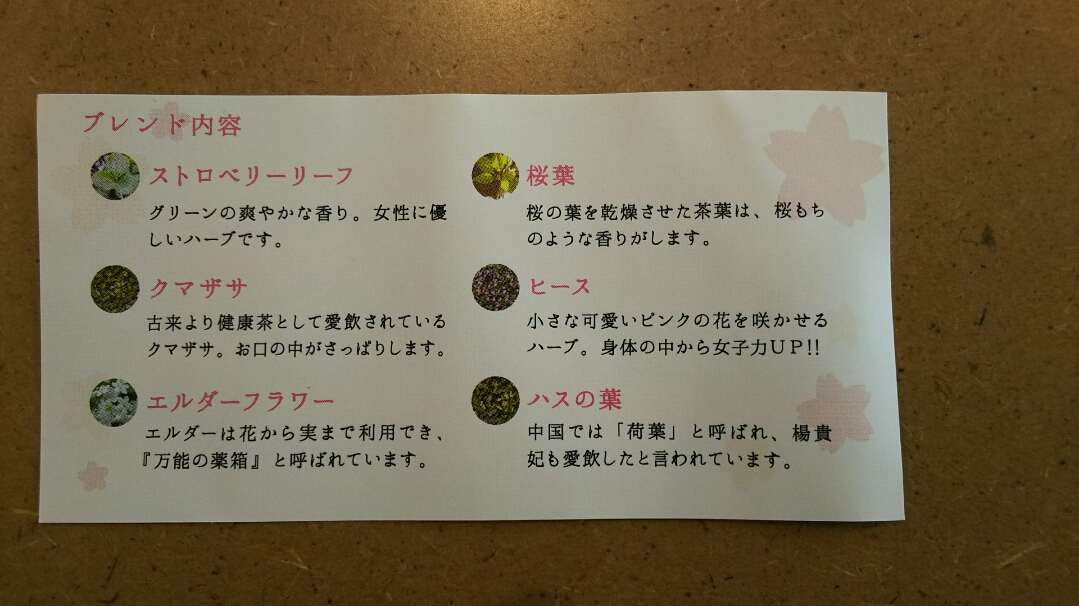 ブレンド内容
ストロベリーリーフ
グリーンの爽やかな香り。女性に優
しいハーブです。
クマザサ
古来より健康茶として愛飲されている
クマザサ。お口の中がさっぱりします。
エルダーフラワー
エルダーは花から実まで利用でき、
『万能の薬箱』と呼ばれています。
桜葉
桜の葉を乾燥させた茶葉は、桜もち
のような香りがします。
ヒース
小さな可愛いピンクの花を咲かせる
ハーブ。身体の中から女子力ＵＰ!!
ハスの葉
中国では「荷葉」と呼ばれ、楊貴
妃も愛飲したと言われています。